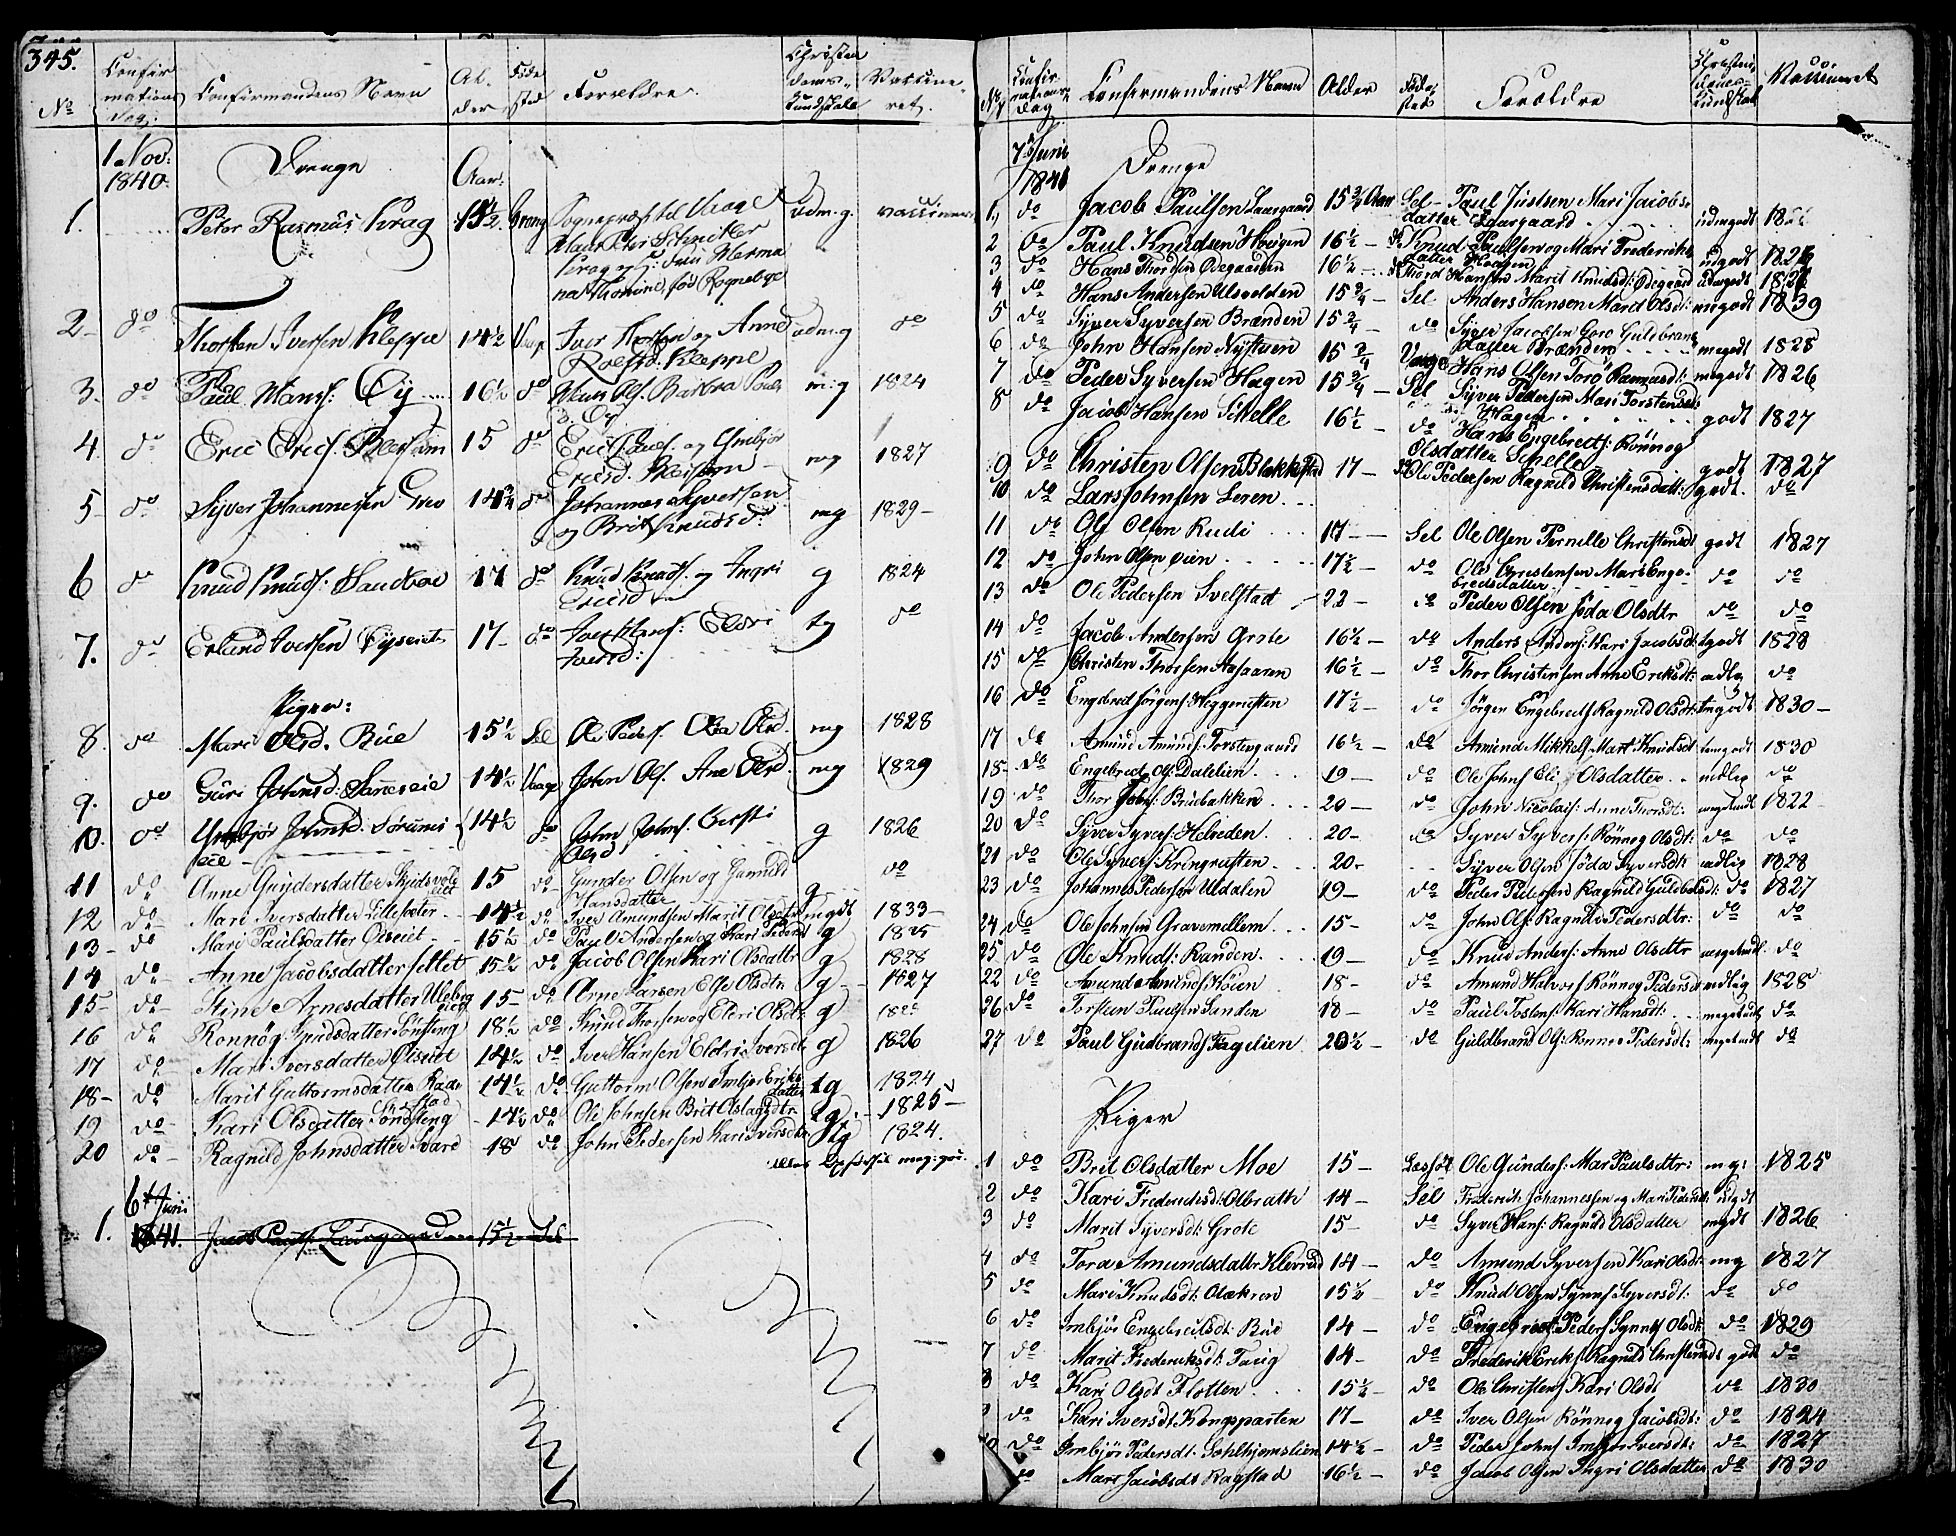 345.
No
Confir
mations
dag.
Confirmandens Navn
Al-
der
Føde
sted
Forældre.
Christen
doms-
Kundskab
Vaccine-
ret.
1 Nov:
1840.
Drenge
Aar.
1. Peter Rasmus Krag 15½ Vang Sognepræst til Vaage udm.g. vaccineret
Hans Peter Schnitler
Krag og
2 do Thosten Iversen Kleppe 14½ Vaage Iver Thosten og Anne udm.g do
Rolfsd. Kleppe
3. do Paul Hansf: Øy 16½ do Hans Olf. Barbra Pauls m:g 1824
d. Øy
4. do Eric Ericf. 15 do Ericf. og Ymbjør mg 1827
Ericsd.
5 do Syver Johannesen 14¾ do Johannes Syversen mg 1829
og Brit Knudsd:
6 do Knud Knudf: Sandboe 17 do Knud Knudf. og Ingri g 1824
Ericsd
7. do Erland Iversen 17 do Iver Hansf: Eldri tg do
Iversd:
Piger:
8. do Mari Olsd. Bue 15½ Sel Ole Pedf. Olsd. mg 1828
9. do Guri Johnsd: 14½ Vaage John Olf. Ane Olsd. mg 1829
10. do Ymbjør Johnsd. 14½ do John Johnf. Kersti g 1826
Olsd
11 do Anne Gundersdatter 15 do Gunder Olsen og Gunnild g do
Hansdatter
12 do Mari Iversdatter Lillesæter 14½ do Iver Amundsen Marit Olsdtr mgdt 1833
13 do Mari Paulsdatter Øiseut 15½ do Paul Andersen og Kari Pedersd g 1825
14 do Anne Jacobsdatter 15½ do Jacob Olsen Kari Olsdattr g 1828
15 do Stine Arnesdatter 15 do Arne Larsen Else Olsdtr g 1827
16 do Ronnøg Knudsdatter Sønsteng 18½ do Knud Thorsen og Eldri Olsdtr g
17 do Mari Iversdatter Øiseut 14½ do Iver Hansen Eldri Iversdtr g 1826
18 do Marit Guttormsdatter 14½ do Guttorm Olsen Imbjør Eriks tg 1824
datter
19 do Kari Olsdatter Sønsteng 14½ do Ole Johnsen Brit Oslagsdtr tg. 1825
20 do Ragnild Johnsdatter 18 do John Pedersen Kari Iversdtr tg 1824.
6te Juni
1. 1841. Jacob Paulf: Laurgaard 15½ Sel
No
Confir
mations
dag
Confirmandens Navn
Alder
Føde
sted
Forældre
Christen
doms
Kundskab
Vaccineret
7de Juni
1841
Drenge
1. do Jacob Paulsen Laurgaard 15¾ Aar Sel Paul Justsen Mari Jacobs
datter Laurgaard udmgodt
2 do Paul Knudsen Hougen 16½ do Knud Paulsen og Mari Frederiks
datter Hougen mgodt 1826
3 do Hans Thordsen Ødegaarden 16½ do Thord Hansen Marit Knudsd: Ødegaard udmgodt
4 do Hans Andersen Ulsvolden 15¾ Sel Anders Hansen Marit Olsdt: megodt 1839
5 do Syver Syversen Brænden 15¾ do Syver Jacobsen Goro Guldbrands
datter Brænden megodt 1828
6 do John Hansen Nystuen 15¾ Vaage Hans Olsen Toro Rasmusdt: megodt 1826
7 do Peder Syversen Hagen 15¾ Sel Syver Pedersen Mari Torstensdtr
Hagen godt 1827
8 do Jacob Hansen Sthelle 16½ do Hans Engebretf: Rönnog
Olsdatter Sthelle godt 1827
9 do Christen Olsen Blekkestad 17 do Ole Pedersen Ragnild Christensdatt: godt. do
10 do Lars Johnsen Leren
11 do Ole Olsen Rudi 17 Sel Ole Olsen Pernille Christensdt godt 1827
12 do John Olsen Øien 17½ do Ole Christensen Mari Enge
bredsdatter do do
13 do Ole Pedersen Svelstad 22 do Peder Olsen Joda Olsdtr do do
14 do Jacob Andersen Grote 16½ do Anders Andersf: Kari Jacobsdt tgodt 1828
15 do Christen Thorsen Aasaaren 16½ do Thor Christensen Anne Eriksdt: mdlig do
16 do Engebred Jørgensf: Heggeristen 17½ do Jørgen Engebredf Ragnild Olsdt: tmgodt 1830
17 do Amund Amundf: Torstengaard 16½ do Amund Mikkelf Marit Knudsdt temgodt 1830
18 do Engebred Olf: Dalelien 19 do Ole Johnf Eli Olsdatter mdlig do
19 do Thor Johnf: Bruebakken 20 do John Nicolaif: Anne Thorsdt: megetmdt 1822
20 do Syver Syverf: Heleden 20 do Syver Syverf Rönnog Olsdt: do do
21 do Ole Syverf: Kringrusten 20 Syver Olsen Joda Syversdt: mdlig 1828
23 do Johannes Pedersen Uldalen 19 do Peder Pedersen Ragnild Guldbdsdt: do 1827
24 do Ole Johnsen Gravemellem 15 do John Olf: Ragnild Pedersdtr: do do
25 do Ole Knudf: Randen 19 do Knud Andersf: Anne Olsdtr megetmdt. do
22 do Amund Amundf Høien 18 do Amund Halvorf Rönnog Pedersdt mdlig 1828
26 do Torsten Paulsen Sanden 18 do Paul Tostenf: Kari Hansdt: megetmdt do
27 do Paul Gudbrandf Fagelien 20½ do Guldbrand Olf: Rönnog Pedersdt: megetmdt do
Piger
1 do Brit Olsdatter Moe 15 Lessøe Ole Gundersf: Mar Paulsdtr: mg: 1825
2 do Kari Frederiksdt: Olbrath 14 Sel Frederik Johannessen og Mari Pedersdt: mgdt
3 do Marit Syversdt: Grote 15 do Syver Hansf: Ragnild Olsdatter mgdt 1826
4 do Tora Amundsdattr Klevrud 14 do Amund Syversen Kari Olsdt: mg 1827
5 do Mari Knudsdt: Olækren 15½ do Knud Olsen Synnf Syversdt: do do
6 do Imbjør Engebretsdt: Bue 14 do Engebret Pedersf Synnf Olsdt: do 1829
7 do Marit Frederiksdt: Furig 14 do Frederik Erikf Ragnild Christensdt godt do
8 do Kari Olsdt Flotten 15½ do Ole Christenf Kari Olsdt do 1830
9 do Kari Iversdt Kongsparten 17 do Iver Olsen Rönnog Jacobsdt: do 1824
10 do Imbjør Pedersdt: Solhjemslien 14½ do Peder Johnf Imbjør Iversdt: do 1827
do Mari Jacobsdt Ragstad 16½ do Jacob Olsen Ingri Olsdatter do 1830